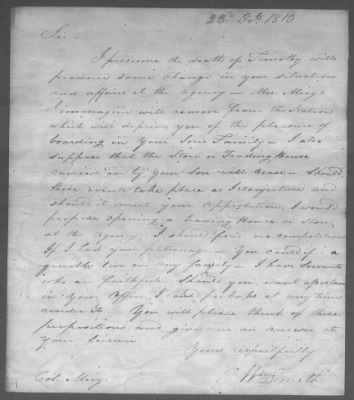 23d Oct. 1813
Sir
I presume the death of Timothy will
produce some change in your situation
and affairs at the agency – Mrs. Meigs
I immagion will remove from the Nation
which will deprive you of the pleasure of
boarding in Your Sons Family – I also
suppose that the Store or Trading House
carried on by Your Son will cease – Should
these events take place as I conjecture and
should it meet your approbation, I would
propose opening a trading House or store
at the agency, I should fear no competition
If I had your patronage – You could if a
greeable live in my family – I have Servants
who are faithful. Should you want assistance
in Your Office I could perhaps at any time
render it. You will please think of these
propositions and give me an answer at
your leisure
Yours respectfully
Col. Meigs